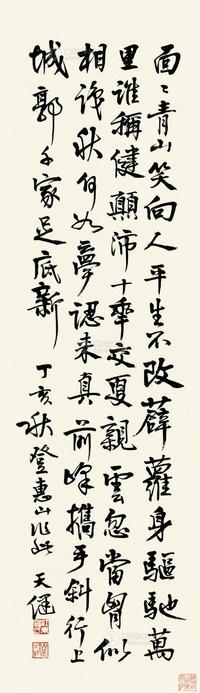 面々青山笑向人平生不改薜蘿身驅馳萬
里誰稱健顛沛十年交更親雲忽當胷似
相識秋何如夢認來真前峰攜手斜行上
城郭千家足底新
丁亥秋登惠山作此 天健